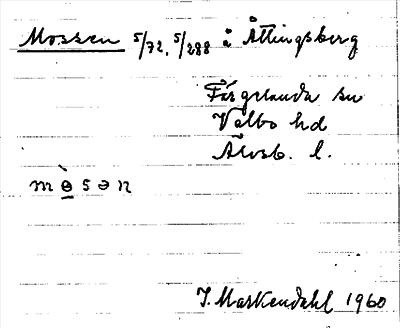 Mossen 5/72, 5/288 å Åttingsberg
Färgelanda sn
Valbo hd
Älvsb. l.
mɵ̀sən
J. Markendahl 1960